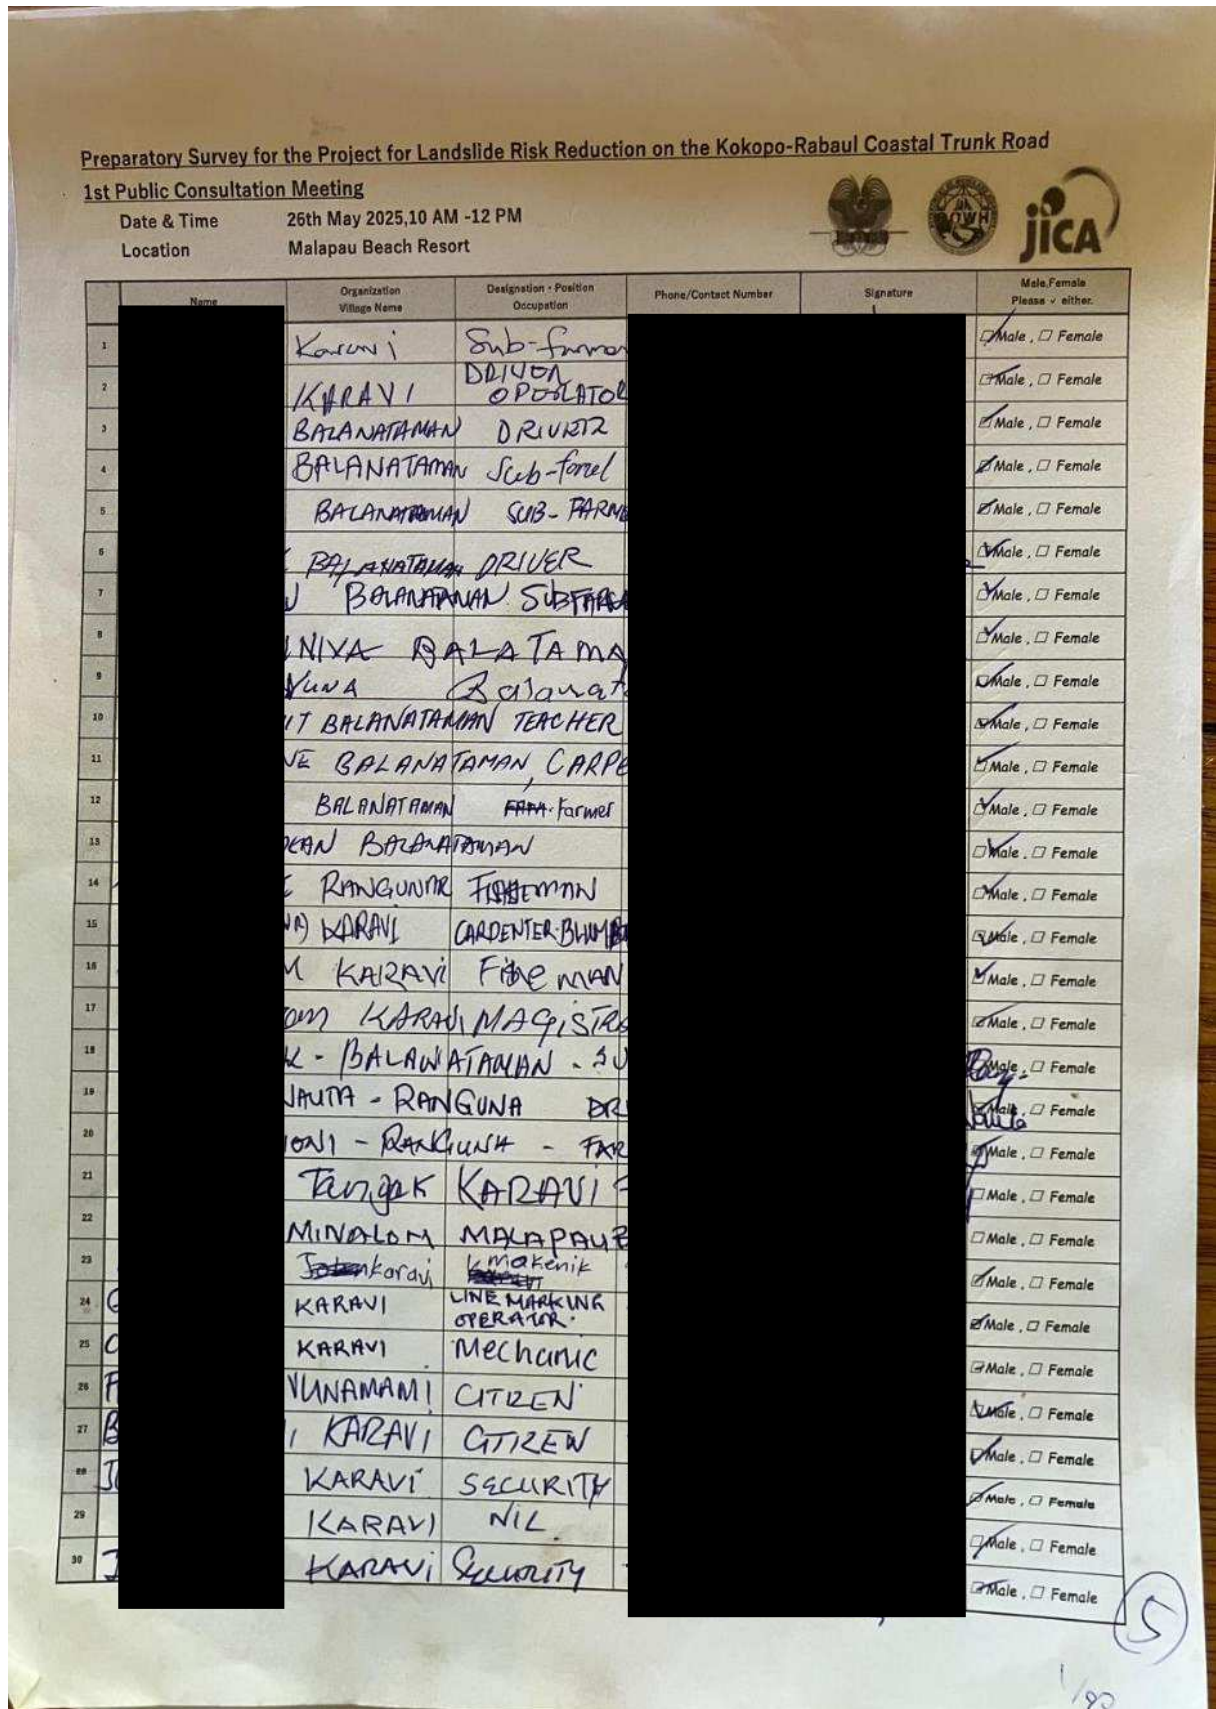 Preparatory Survey for the Project for Landslide Risk Reduction on the Kokopo-Rabaul Coastal Trunk Road
1st Public Consultation Meeting
Date & Time 26th May 2025,10 AM -12 PM
Location Malapau Beach Resort
JICA
Name Organization Village Name Designation・Position Occupation Phone/Contact Number Signature Male,Female Please ✓ either.
1 Karavi Male , Female
2 KARAVI Male , Female
3 BALANATAMAN Male , Female
4 BALANATAMAN Male , Female
5 BALANATAMAN SUB- Male , Female
6 BALANATAMAN DRIVER Male , Female
7 Male , Female
8 NIVA BALATAMA Male , Female
9 Balanat Male , Female
10 IT BALANATAMAN TEACHER Male , Female
11 NE BALANATAMAN, CARPE Male , Female
12 BALANATAMAN Farmer Male , Female
13 KAN BALANATAMAN Male , Female
14 Male , Female
15 KARAVI CARDENTER Male , Female
16 M KARAVI MAN Male , Female
17 om KARAVI MAGISTRA Male , Female
18 K - BALAWATAMAN - SU Male , Female
19 NAUTA - RANGUNA DR Male , Female
20 IONI - RANGUNA - FAR Male , Female
21 Tangak KARAVI Male , Female
22 MINALOM MALAPAU Male , Female
23 karavi makenik Male , Female
24 KARAVI LINE MARKING OPERATOR. Male , Female
25 KARAVI Mechanic Male , Female
26 VUNAMAMI Male , Female
27 KARAVI Male , Female
28 KARAVI SECURITY Male , Female
29 KARAVI NIL Male , Female
30 KARAVI Security Male , Female
5